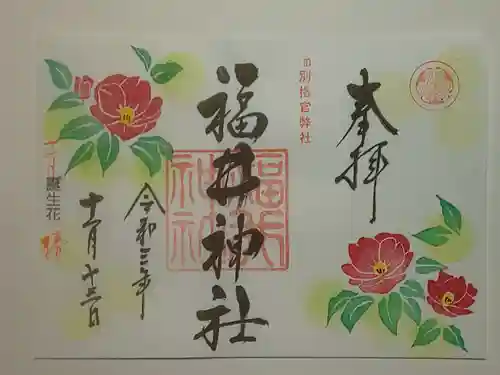 奉拝
旧別格官幣社
福井神社
福井神社
令和三年
十二月十三日
誕生花
椿